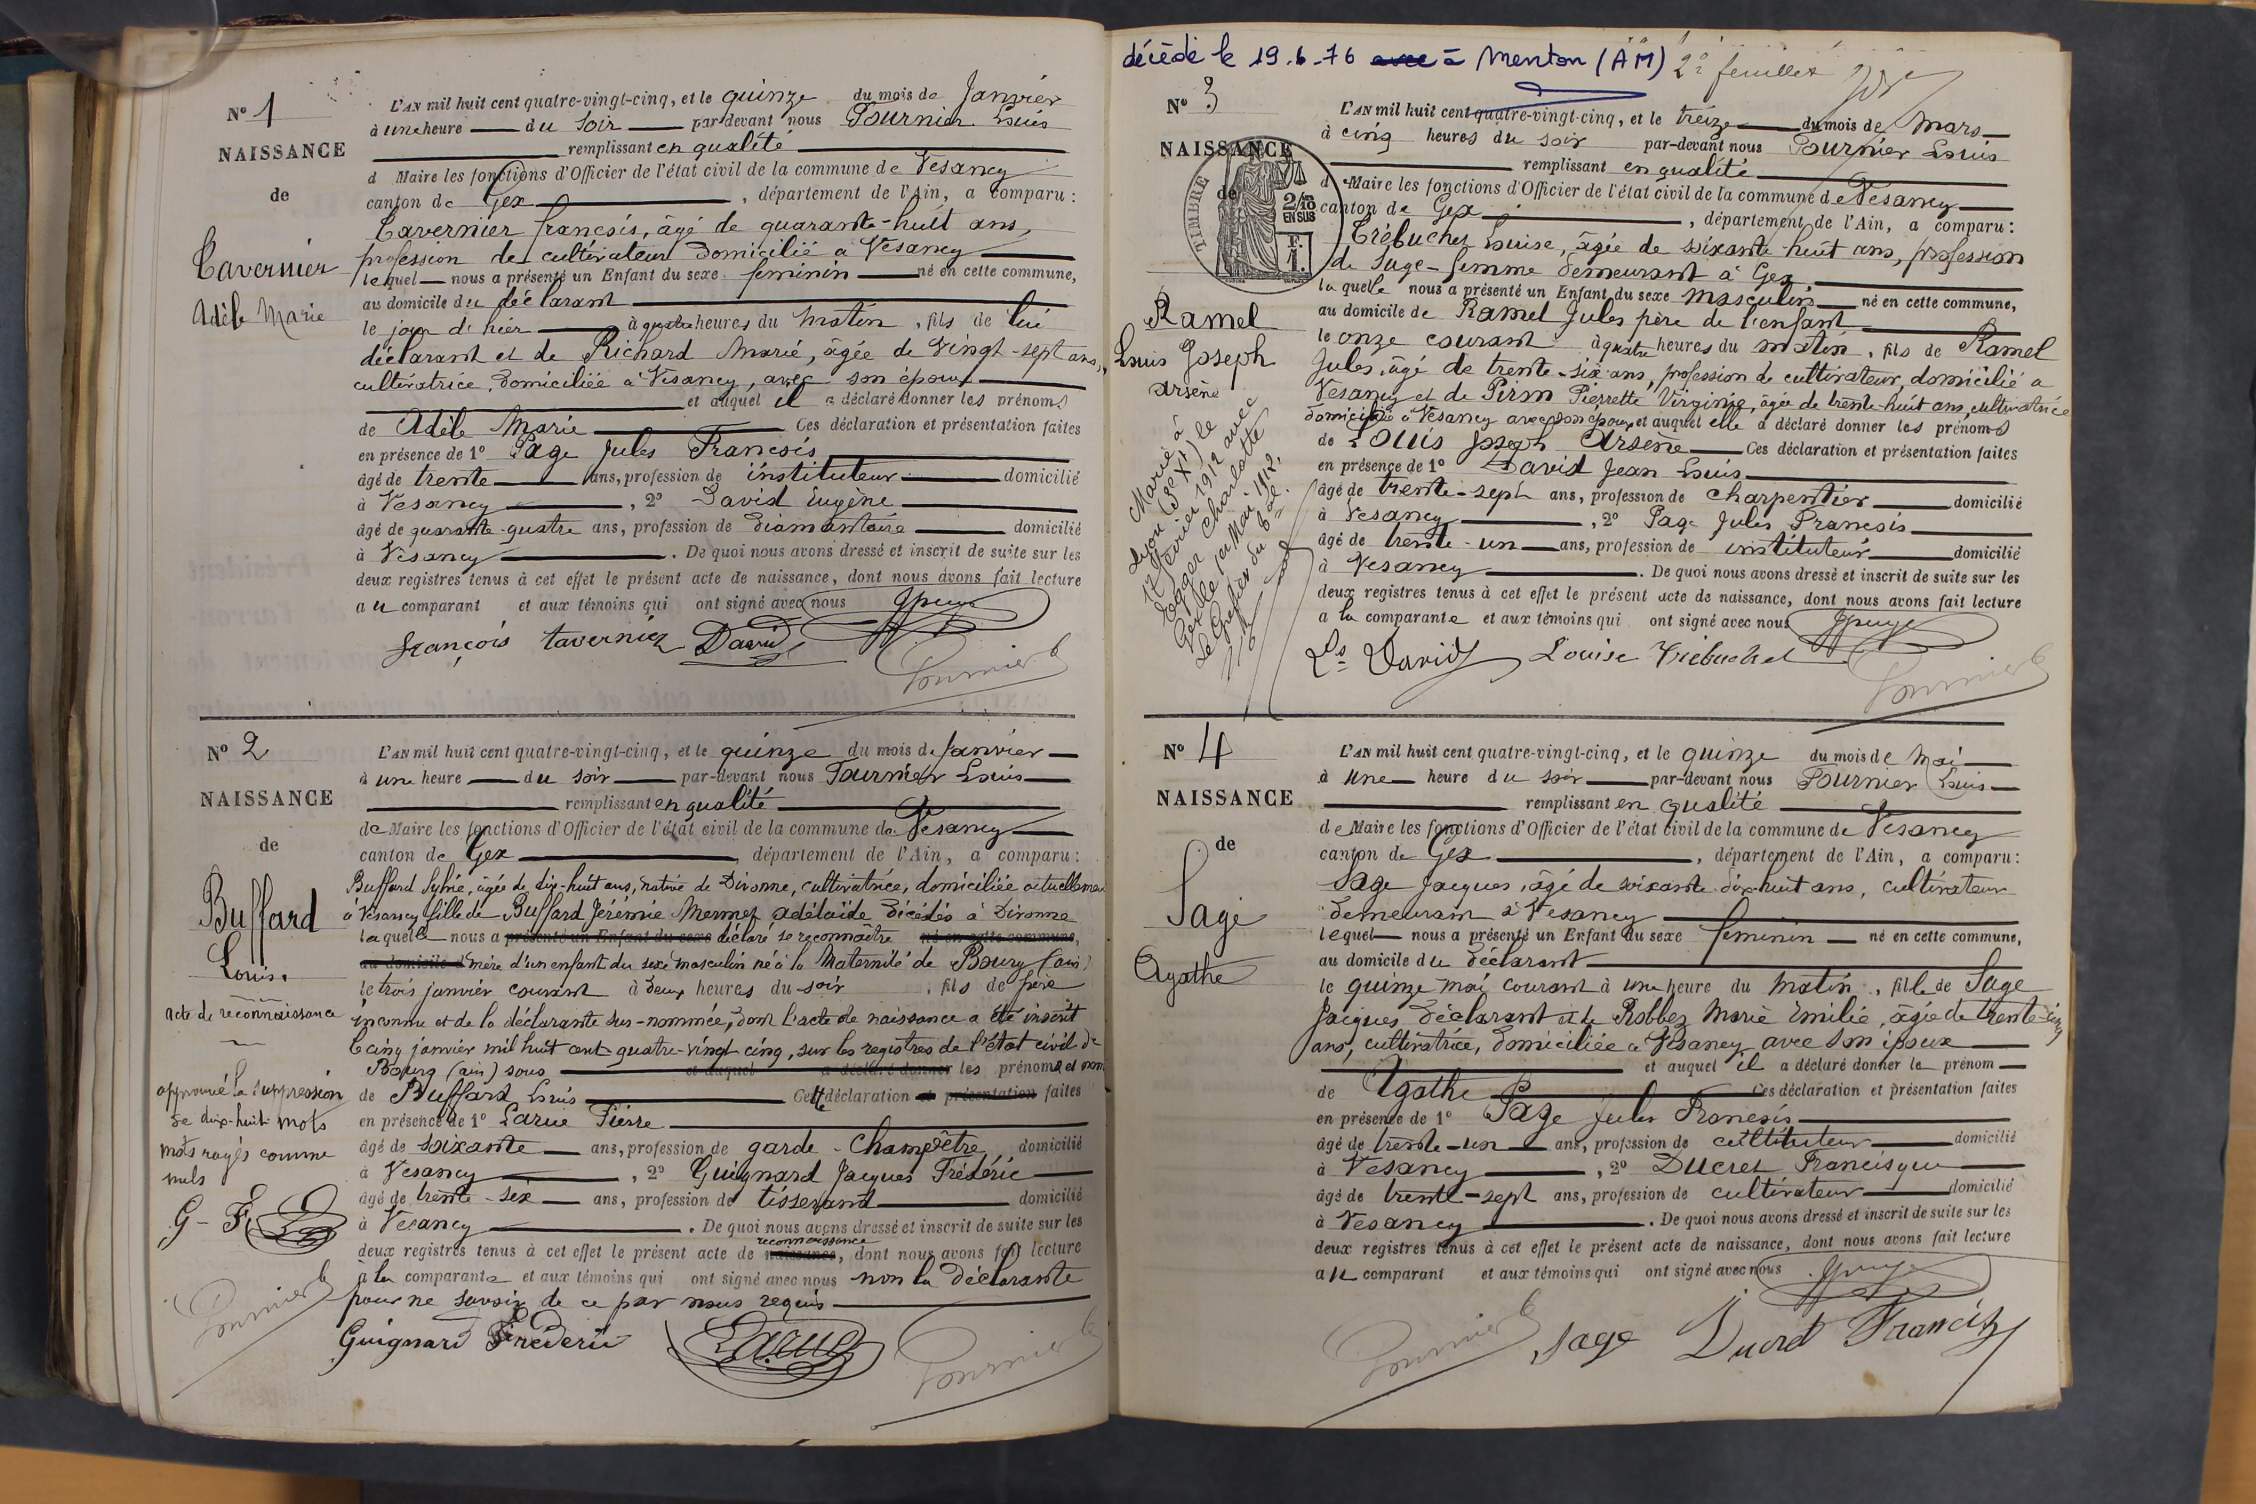 N° 1
NAISSANCE
de
Tavernier
Adèle Marie
L'AN mil huit cent quatre-vingt-cinq, et le quinze du mois de Janvier
à une heure du soir par-devant nous Fournier Louis
remplissant en qualité
d Maire les fonctions d'Officier de l'état civil de la commune de Vesancy
canton de Gex, département de l'Ain, a comparu :
Tavernier françois, âgé de quarante-huit ans,
profession de cultivateur domicilié à Vesancy
lequel nous a présenté un Enfant du sexe féminin né en cette commune,
au domicile du déclarant
le jour d'hier à quatre heures du matin, fils de lui
déclarant et de Richard Marie, âgée de vingt-sept ans,
cultivatrice, domiciliée à Vesancy, avec son époux
et auquel il a déclaré donner les prénoms
de Adèle Marie Ces déclaration et présentation faites
en présence de 1° Page Jules François
âgé de trente ans, profession de instituteur domicilié
à Vesancy, 2° David Eugène
âgé de quarante-quatre ans, profession de diamantaire domicilié
à Vesancy. De quoi nous avons dressé et inscrit de suite sur les
deux registres tenus à cet effet le présent acte de naissance, dont nous avons fait lecture
au comparant et aux témoins qui ont signé avec nous
françois tavernier David
Fournier L
N° 2
NAISSANCE
de
Buffard
Louis.
acte de reconnaissance
approuvé la suppression
de dix-huit mots
mots rayés comme
nuls
G - F.
Fournier L
L'AN mil huit cent quatre-vingt-cinq, et le quinze du mois de Janvier
à une heure du soir par-devant nous Fournier Louis
remplissant en qualité
de Maire les fonctions d'Officier de l'état civil de la commune de Vesancy
canton de Gex, département de l'Ain, a comparu :
Buffard Sylvie, âgée de dix-huit ans, native de Divonne, cultivatrice, domiciliée actuellement
à Vesancy fille de Buffard Jérémie Mermet adélaïde décédés à Divonne
laquelle nous a présenté un Enfant du sexe déclaré se reconnaître né en cette commune,
au domicile d mère d'un enfant du sexe masculin né à la Maternité de Bourg (ain)
le trois janvier courant à deux heures du soir, fils de père
inconnu et de la déclarante sus-nommée, dont l'acte de naissance a été inscrit
le cinq janvier mil huit cent quatre-vingt cinq, sur les registres de l'état civil de
Bourg (ain) sous et auquel a déclaré donner les prénoms et nom
de Buffard Louis Cette déclaration et présentation faites
en présence de 1° Larue Pierre
âgé de soixante ans, profession de garde-champêtre domicilié
à Vesancy, 2° Guignard Jacques Frédéric
âgé de trente-six ans, profession de tisserand domicilié
à Vesancy. De quoi nous avons dressé et inscrit de suite sur les
reconnaissance
deux registres tenus à cet effet le présent acte de naissance, dont nous avons fait lecture
à la comparante et aux témoins qui ont signé avec nous non la déclarante
pour ne savoir de ce par nous requis
Guignard Frédéric Larue
Fournier L
décédé le 19.6.76 avec à Menton (AM) 2e feuillet
N° 3
NAISSANCE
de
TIMBRE
2/10
EN SUS
Ramel
Louis Joseph
Arsène
Marié à
Lyon (3e Xt) le
17 février 1912 avec
Charlotte
Gex le 1er Mai 1912.
Le Greffier du
L'AN mil huit cent quatre-vingt-cinq, et le treize du mois de Mars
à cinq heures du soir par-devant nous Fournier Louis
remplissant en qualité
de Maire les fonctions d'Officier de l'état civil de la commune de Vesancy
canton de Gex, département de l'Ain, a comparu :
Trébuchet Louise, âgée de soixante-huit ans, profession
de Sage-femme demeurant à Gex
laquelle nous a présenté un Enfant du sexe masculin né en cette commune,
au domicile de Ramel Jules père de l'enfant
le onze courant à quatre heures du matin, fils de Ramel
Jules, âgé de trente-six ans, profession de cultivateur, domicilié à
Vesancy et de Pirm Pierrette Virginie, âgée de trente-huit ans, cultivatrice
domiciliée à Vesancy avec son époux et auquel elle a déclaré donner les prénoms
de Louis Joseph Arsène Ces déclaration et présentation faites
en présence de 1° David Jean Louis
âgé de trente-sept ans, profession de charpentier domicilié
à Vesancy, 2° Page Jules François
âgé de trente-un ans, profession de instituteur domicilié
à Vesancy. De quoi nous avons dressé et inscrit de suite sur les
deux registres tenus à cet effet le présent acte de naissance, dont nous avons fait lecture
a la comparante et aux témoins qui ont signé avec nous
Ls David Louise Trébuchet
Fournier L
N° 4
NAISSANCE
de
Sage
Agathe
L'AN mil huit cent quatre-vingt-cinq, et le quinze du mois de Mai
à une heure du soir par-devant nous Fournier Louis
remplissant en qualité
de Maire les fonctions d'Officier de l'état civil de la commune de Vesancy
canton de Gex, département de l'Ain, a comparu :
Sage Jacques, âgé de soixante-dix-huit ans, cultivateur
demeurant à Vesancy
lequel nous a présenté un Enfant du sexe féminin né en cette commune,
au domicile du déclarant
le quinze mai courant à une heure du matin, fille de Sage
Jacques déclarant et de Robbez Marie Emilie, âgée de trente-cinq
ans, cultivatrice, domiciliée à Vesancy avec son époux
et auquel il a déclaré donner le prénom
de Agathe Ces déclaration et présentation faites
en présence de 1° Page Jules François
âgé de trente-un ans, profession de domicilié
à Vesancy, 2° Ducret Francisque
âgé de trente-sept ans, profession de cultivateur domicilié
à Vesancy. De quoi nous avons dressé et inscrit de suite sur les
deux registres tenus à cet effet le présent acte de naissance, dont nous avons fait lecture
au comparant et aux témoins qui ont signé avec nous
Fournier L Sage Ducret Francis